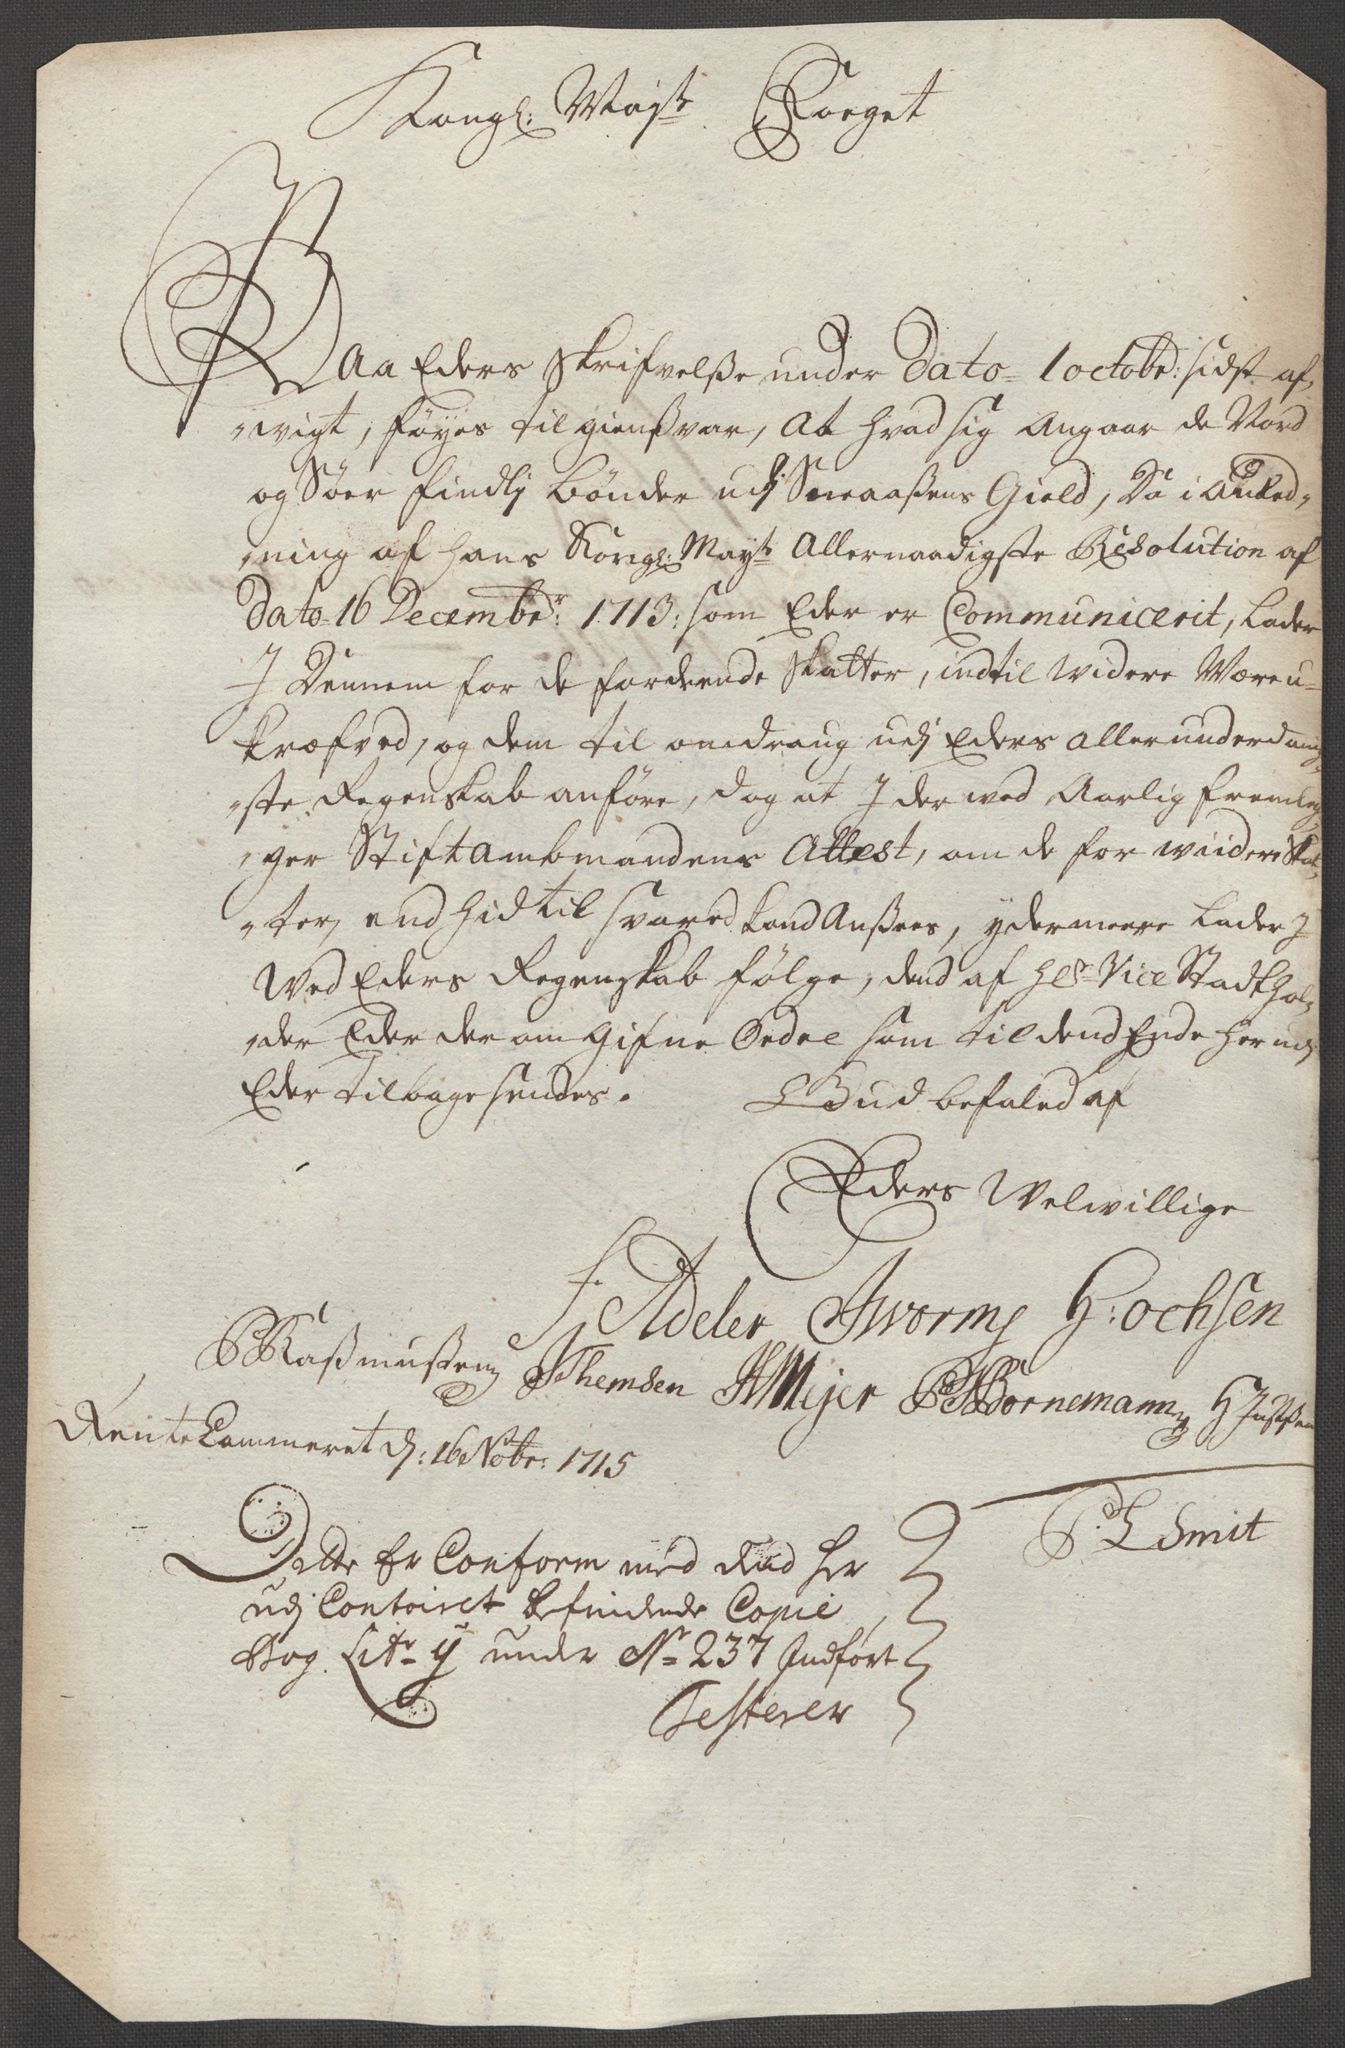 Kongl: Mayts Foeget
Paa Eders Skrifvelße under Dato 1 octobr: sidst af,
,vigt, föyes til gienßvar, At hvad sig Angaar de Nord
og Söer findlj bönder udj Sneaaßens Gield, Da i Anled,
,ning af hans Kongl: Mayts Allernaadigste Resolution af
Dato 16 Decembr: 1713: som Eder er Communicerit, Lader
J Dennem for de fordrende Skatter, indtil widere Være u-
kræfved, og dem til omdraug udj Eders allerunderdanig,
,ste Regenskab anföre, dog at J der ved Aarlig fremleg,
,ger Stiftambtmandens Attest, om de for wiidere Skat,
,ter, end hid til svared kand Anßees, ydermeere Lader J
Ved Eders Regenskab fölge, dend af Hr Vice Stadthol,
,der Eder der om gifne Ordre som til dend Ende her udj
Eder tilbage sendes. Gud befaled af
Eders Velwillige
F. Adeler JWorm H: ochsen
P Raßmußen JThemsen HMeijer PHBornemann H Justsen
Rente Cammeret d: 16 Nobr: 1715
P: L Smit
Dette Er Conform med dend her
udj Contoiret befindende Copie
Bog Litr y under No 237 Jndfört
Testerer